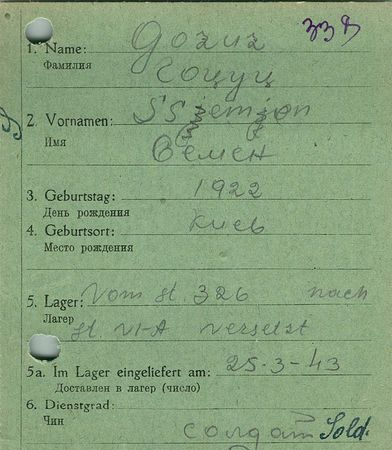 339
1. Name:
Фамилия
2. Vornamen: Ssjemjon
Имя Семен
3. Geburtstag: 1922
День рождения
4. Geburtsort: Киев
Место рождения
5. Lager: Vom st. 326 nach
Лагер st VI-A versetzt
5a. Im Lager eingeliefert am: 25-3-43
Доставлен в лагер (число)
6. Dienstgrad:
Чин солдат Sold.